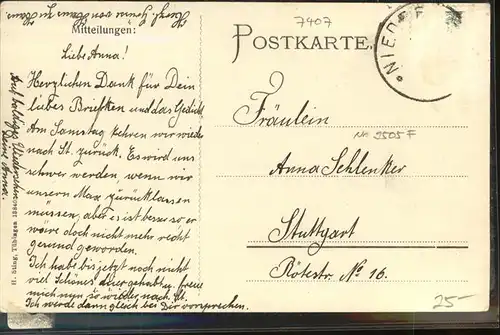 Herzl. Grüße von Haus zu Haus.
Mitteilungen:
Liebe Anna!
Herzlichen Dank für Dein
liebes Briefken und das Gedicht
Am Samstag kehren wir wieder
nach St. zurück. Es wird uns
schwer werden, wenn wir
unsern Max zurücklassen
müssen, aber es ist besser so er
wäre doch nicht mehr recht
gesund geworden.
Ich habe bis jetzt noch nicht
viel Schönes hier gehabt, freue
mich nun so wieder nach St.
Ich werde dann gleich bei Dir vorsprechen.
Auf baldiges Wiedersehen
Deine Anna.
H. Sting, Tübingen
7407
POSTKARTE.
NIED
Fräulein
No 9505 F
Anna Schlenker
Stuttgart
Rötestr. No 16.
25-